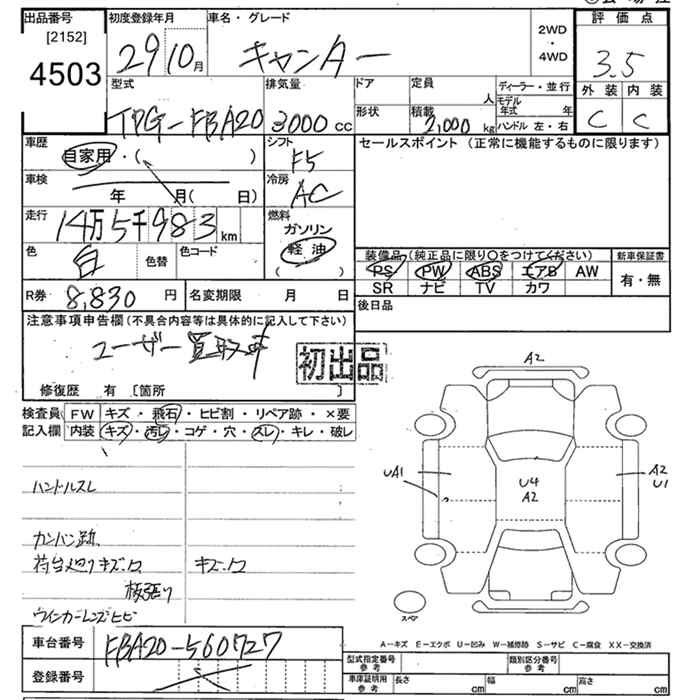 出品番号 初度登録年月 車名・グレード 評価点
[2152]
4503
29 10月 キャンター
2WD
・
4WD
3.5
外装 内装
C C
型式 排気量 ドア 定員 人 ディーラー・並行
TPG-FBA20 3000cc 形状 積載 2,000kg モデル年式 年
ハンドル 左・右
車歴 シフト セールスポイント (正常に機能するものに限ります)
自家用・( ) F5
車検 冷房
年 月( 日) AC
走行 燃料
14万5千983km ガソリン
色 色替 色コード 軽油
白 ( )
装備品(純正品に限り〇をつけてください) 新車保証書
PS PW ABS エアB AW 有・無
SR ナビ TV カワ
R券 8,830円 名変期限 月 日 後日品
注意事項申告欄(不具合内容等は具体的に記入して下さい)
ユーザー買取車
初出品
修復歴 有 [箇所 ]
検査員 FW キズ・飛石・ヒビ割・リペア跡・×要
記入欄 内装 キズ・汚レ・コゲ・穴・スレ・キレ・破レ
A2
UA1 U4 A2
A2 U1
ハンドルスレ
カンバン跡
荷台廻りキズ・凹 キズ・凹
板張り
ウインカーレンズヒビ
スペア
車台番号 FBA20-560727
登録番号
A-キズ E-エクボ U-凹み W-補修跡 S-サビ C-腐食 XX-交換済
型式指定番号 参考 類別区分番号 参考
車庫証明用 参考 長さ cm 幅 cm 高さ cm